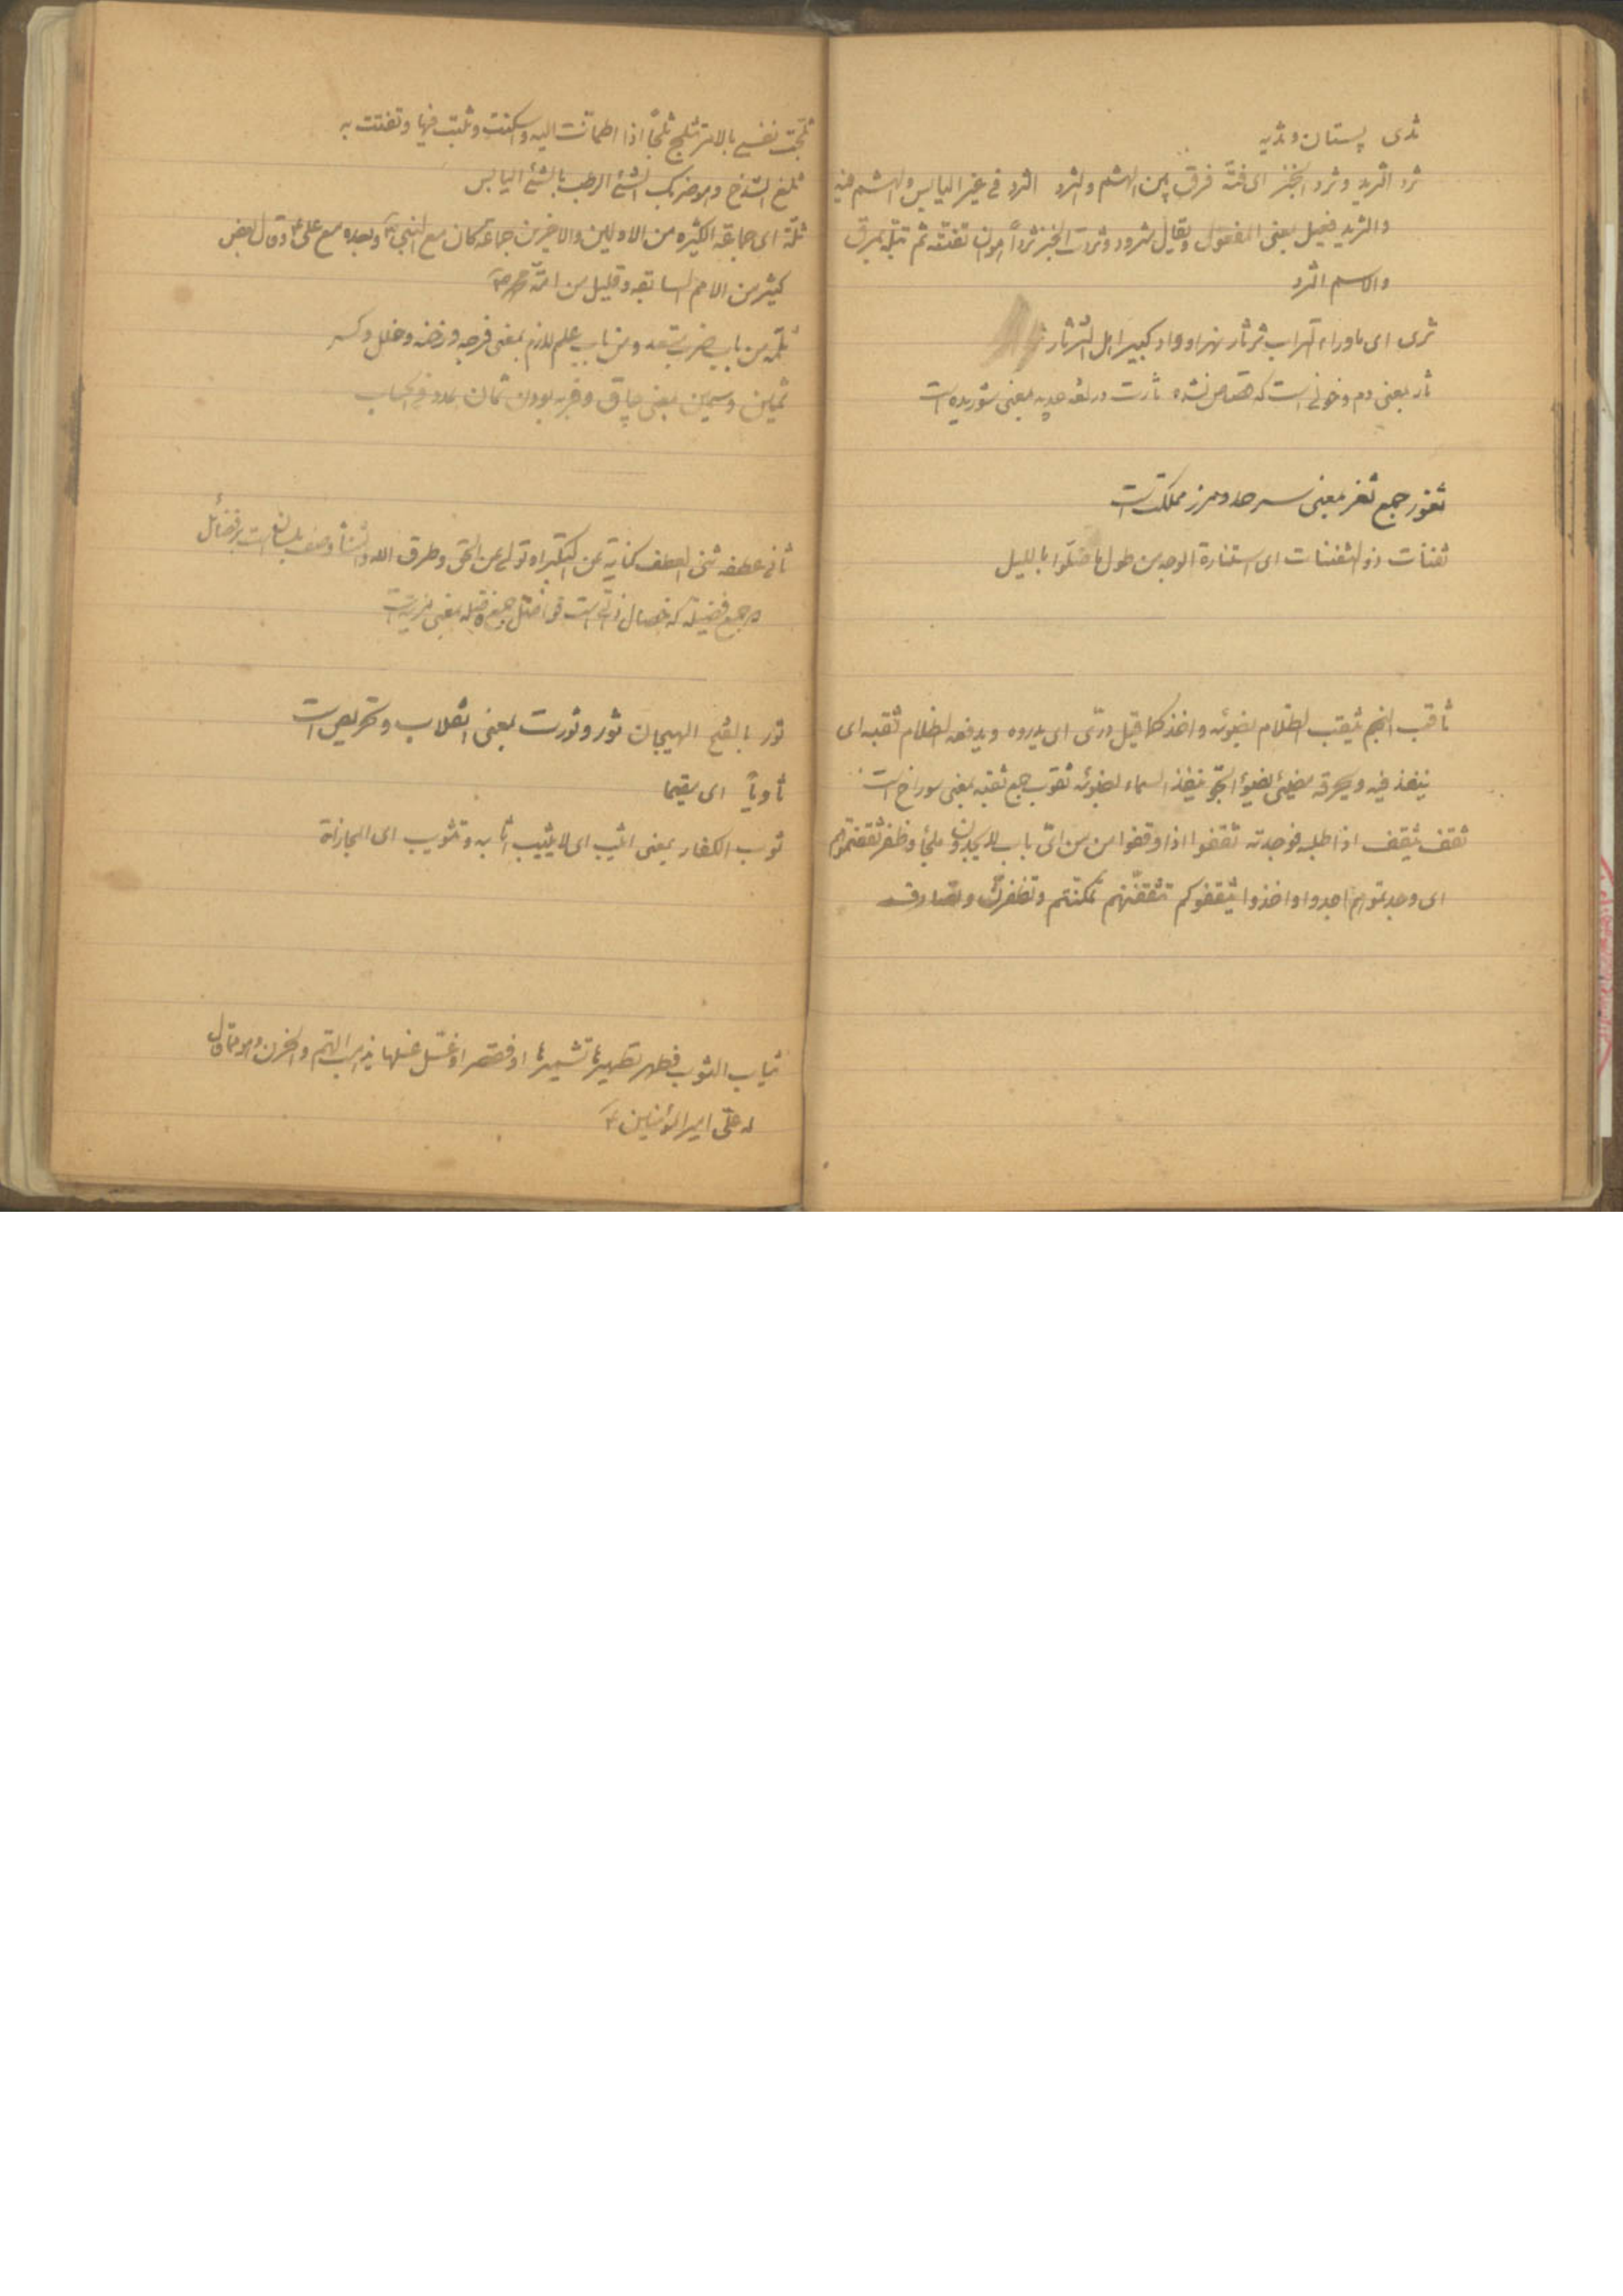 ثدی پستان و ثدیه
ثرد الثرید و ثرد الخبز ای فتّه فرق بین الهشم والثرد الثرد فی غیر الیابس والهشم فیه
والثرید فعیل بمعنی المفعول ویقال مثرود وثردت الخبز ثرداً هو ان تفتّه ثم تبلّه بمرق
والاسم الثرد
ثری ای ماوراء التراب ثرثار نهر او واد کبیر اهل الثرثار
ثار بمعنی دم و خونی است که قصاص نشده ثارت در لغه جدیه بمعنی شوریده است
ثغور جمع ثغر بمعنی سرحد و مرز مملکت است
ثفنات ذو الثفنات ای استنارة الوجه من طول ما صلّوا باللیل
ثاقب النجم یثقب الظلام بضوئه و اخذ کما قیل درّی ای یدروه و یدفعه الظلام ثقبه ای
ینفذ فیه و یحرقه مضیئی لضوء الجو ینفذ السماء بضوئه ثقوب جمع ثقبه بمعنی سوراخ است
ثقف یثقف اذا طلبه فوجدته ثقفوا اذا وقفوا من ای باب لا یجدون ملجأ و ظفر ثقفتموهم
ای وجدتموهم اجدوا و اخذوا یثقفوکم تثقفنهم تمکنتم و تظفرن و تصادف
ثلجت نفسی بالامر تثلج ثلجاً اذا اطمأنت الیه و سکنت و ثبت فیها و تفتت به
ثلغ الشدخ و هو ضربک الشئ الرطب بالشئ الیابس
ثلّة ای جماعة الکثیره من الاولین والاخرین جماعة کان مع النبی و بعده مع علی و قال بعض
کثیر من الامم السابقه و قلیل من امّة محمد ص
ثلمه من باب ضرب متعد و من باب علم لازم بمعنی فرجه و رخنه و خلل و کسر
ثمین و سمین بمعنی چاق و فربه بودن ثمان عدد فی الحساب
ثانی عطفه ثنی العطف کنایة عن التکبر او تولی عن الحق و طرق الله
جمع فضیلة که خصال ذاتی است فواضل جمع فاضله بمعنی مزیت است
ثور بالفتح الهیجان ثور و ثورت بمعنی انقلاب و تحریص است
ثاویاً ای مقیما
ثوب الکفار بمعنی اثیب ای لا یثیب اثابه و تثویب ای المجازاة
ثیاب الثوب فطهر تطهیراً تشمیراً او فقصر او غسل غسلها یذهب الهم والحزن
له علی امیر المؤمنین ع